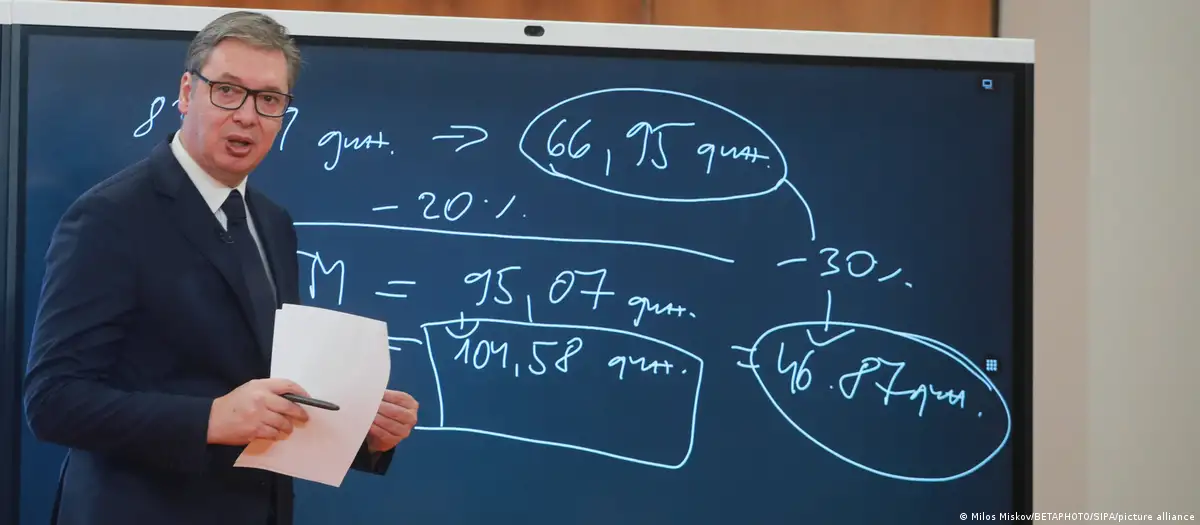 8 дин. ⇒ 66,95 дин.
- 20 %
- 30 %
M = 95,07 дин.
= 104,58 дин. = 46.87 дин.
© Milos Miskov/BETAPHOTO/SIPA/picture alliance